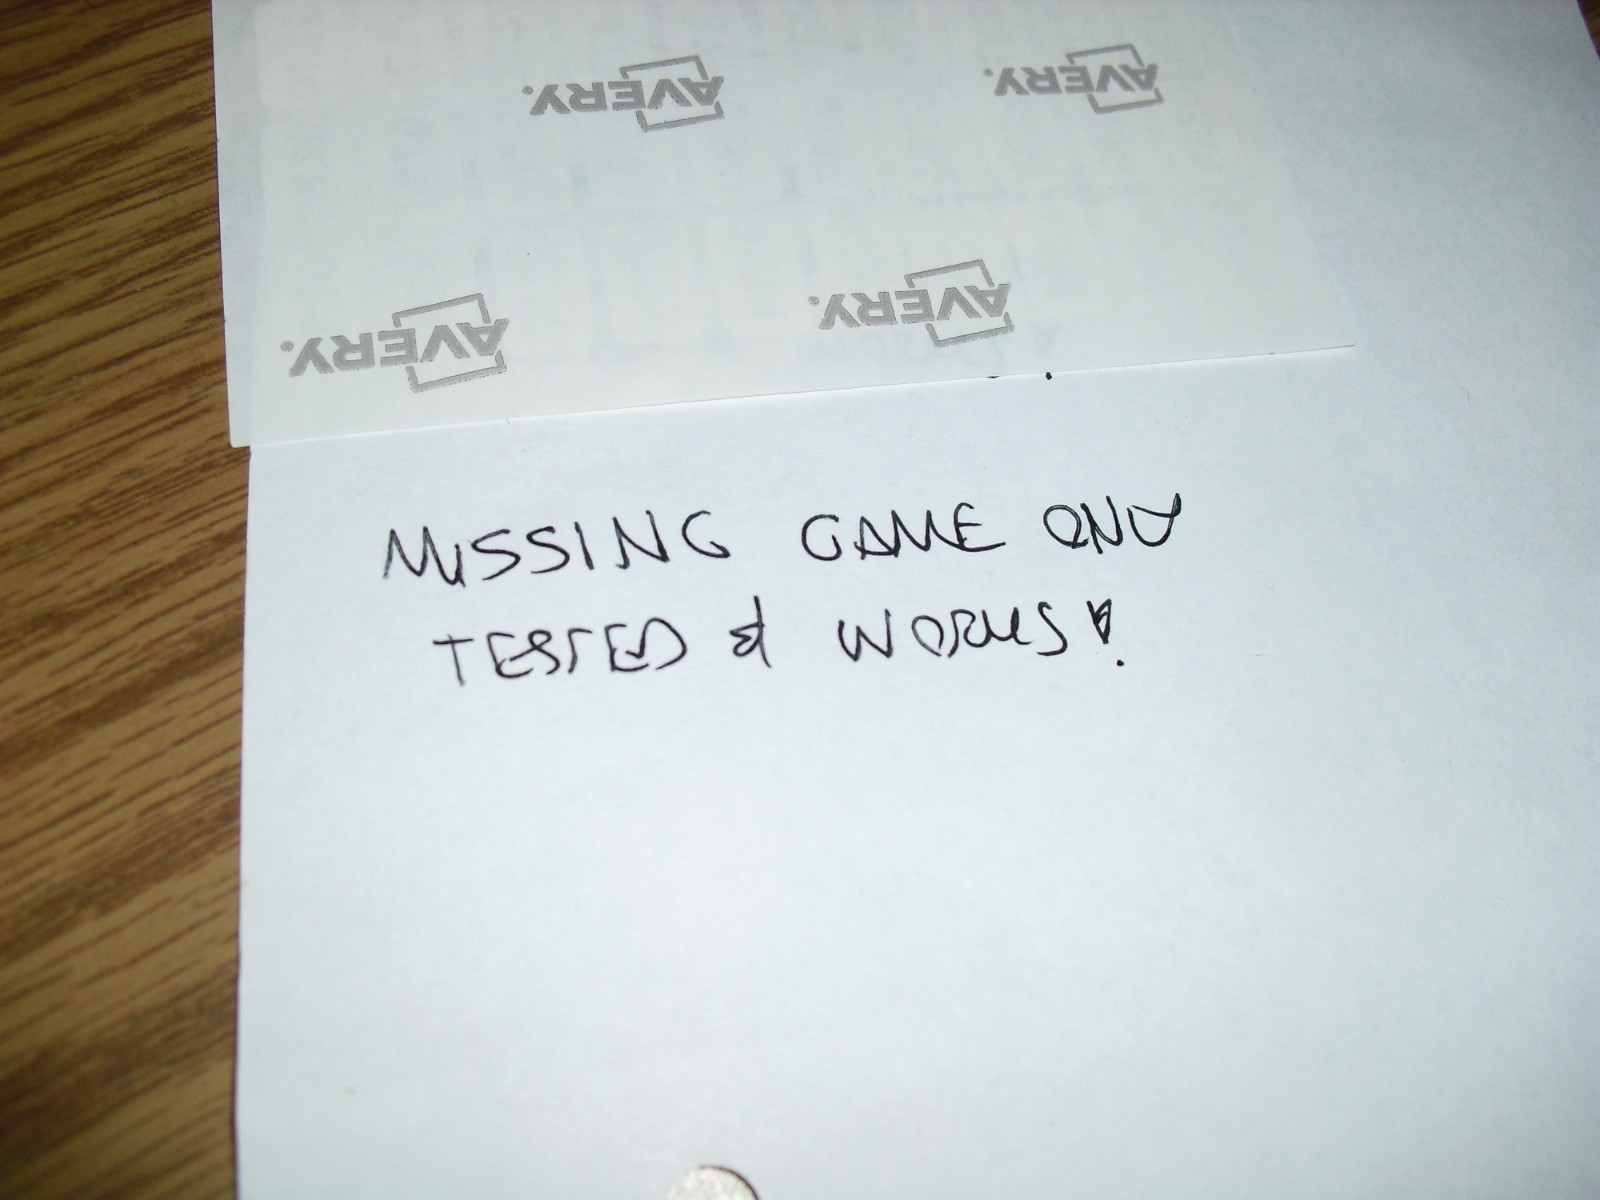 AVERY.
AVERY.
AVERY.
AVERY.
MISSING GAME ONLY
TESTED & WORKS!